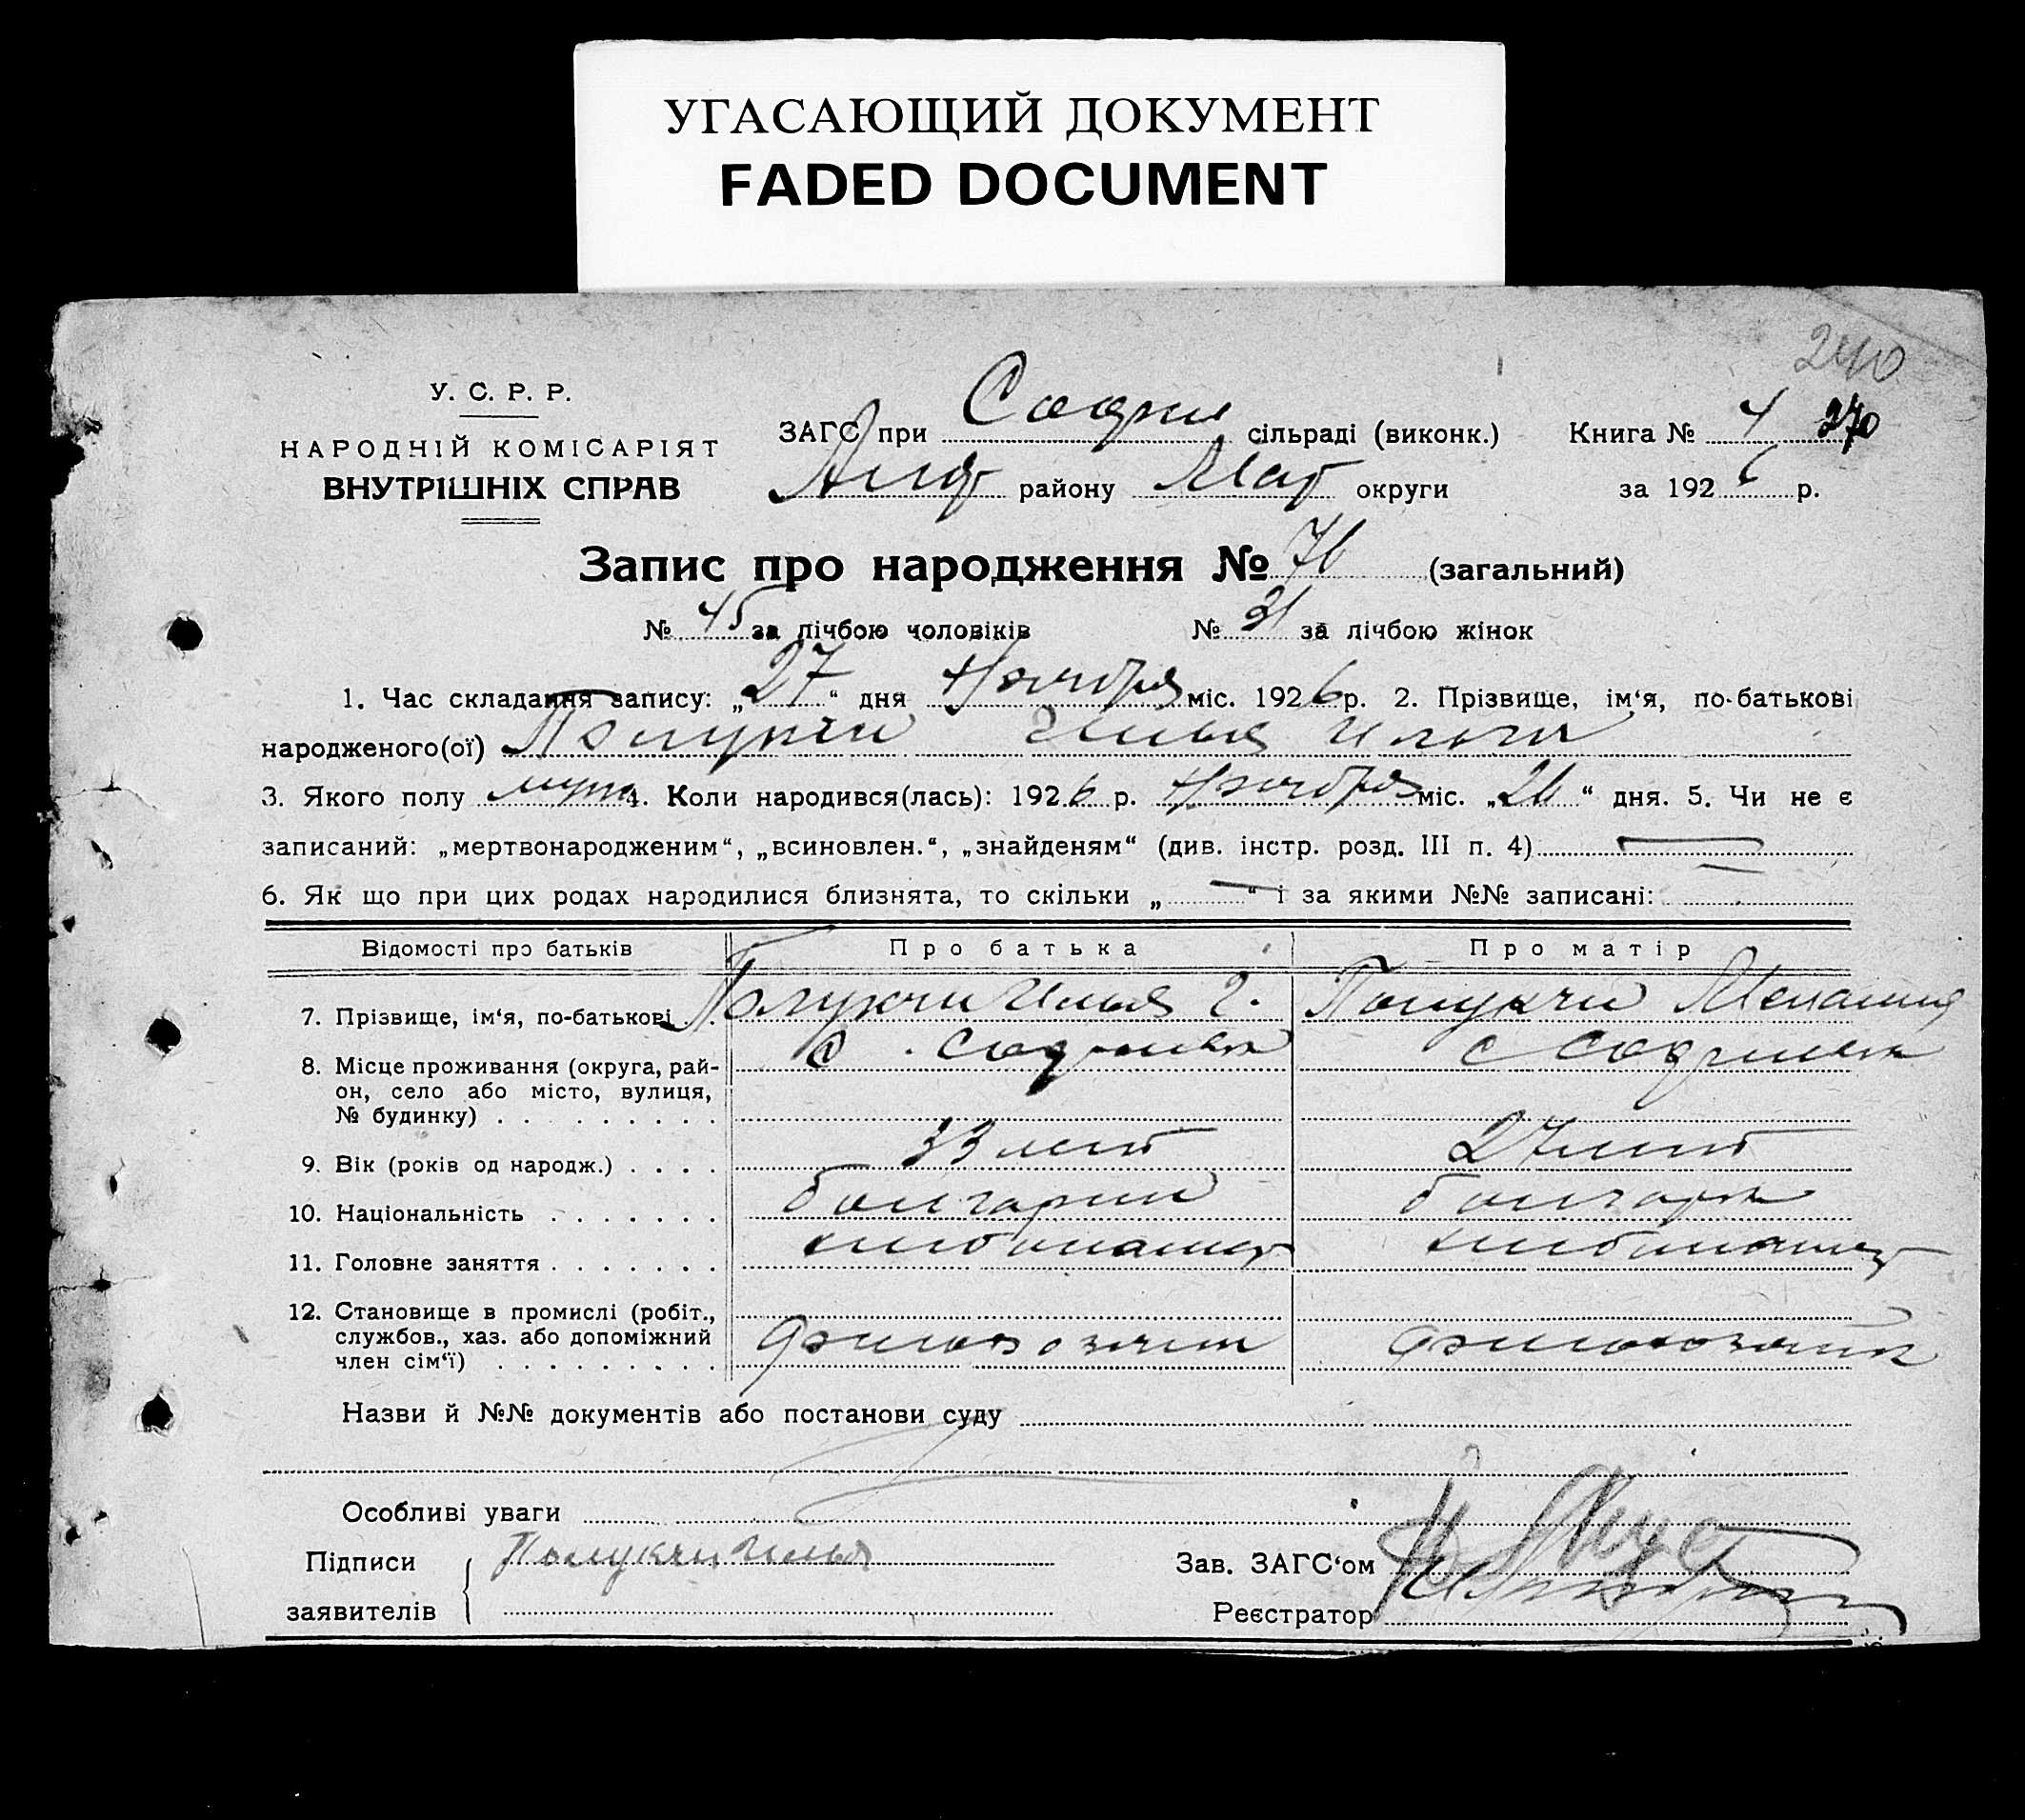 УГАСАЮЩИЙ ДОКУМЕНТ
FADED DOCUMENT
240
У. С. Р. Р.
НАРОДНІЙ КОМІСАРІЯТ
ВНУТРІШНІХ СПРАВ
ЗАГС при Софии сільраді (виконк.) Книга № 4 270
району округи за 1926 р.
Запис про народження № 76 (загальний)
№ 45 за лічбою чоловіків № 31 за лічбою жінок
1. Час складання запису: „27“ дня Ноября міс. 1926 р. 2. Прізвище, ім‘я, по-батькові
народженого(ої) Полукчи Илья Ильич
3. Якого полу муж 4. Коли народився(лась): 1926 р. Ноября міс. „26“ дня. 5. Чи не є
записаний: „мертвонародженим“, „всиновлен.“, „знайденям“ (див. інстр. розд. III п. 4) —
6. Як що при цих родах народилися близнята, то скільки „—“ і за якими №№ записані: —
Відомості про батьків Про батька Про матір
7. Прізвище, ім‘я, по-батькові . . Полукчи Илья Полукчи Мелания
8. Місце проживання (округа, рай- с. Софиевка с Софиевка
он, село або місто, вулиця,
№ будинку) . . . . . . . . .
9. Вік (років од народж.) . . . . 33 лет 27 лет
10. Національність . . . . . . . болгарин болгарка
11. Головне заняття . . . . . . . хлебопашец хлебопашец
12. Становище в промислі (робіт.,
службов., хаз. або допоміжний
член сім‘ї) . . . . . . . . .
Назви й №№ документів або постанови суду
Особливі уваги
Підписи Полукчи Илья Зав. ЗАГС‘ом
заявителів Реєстратор